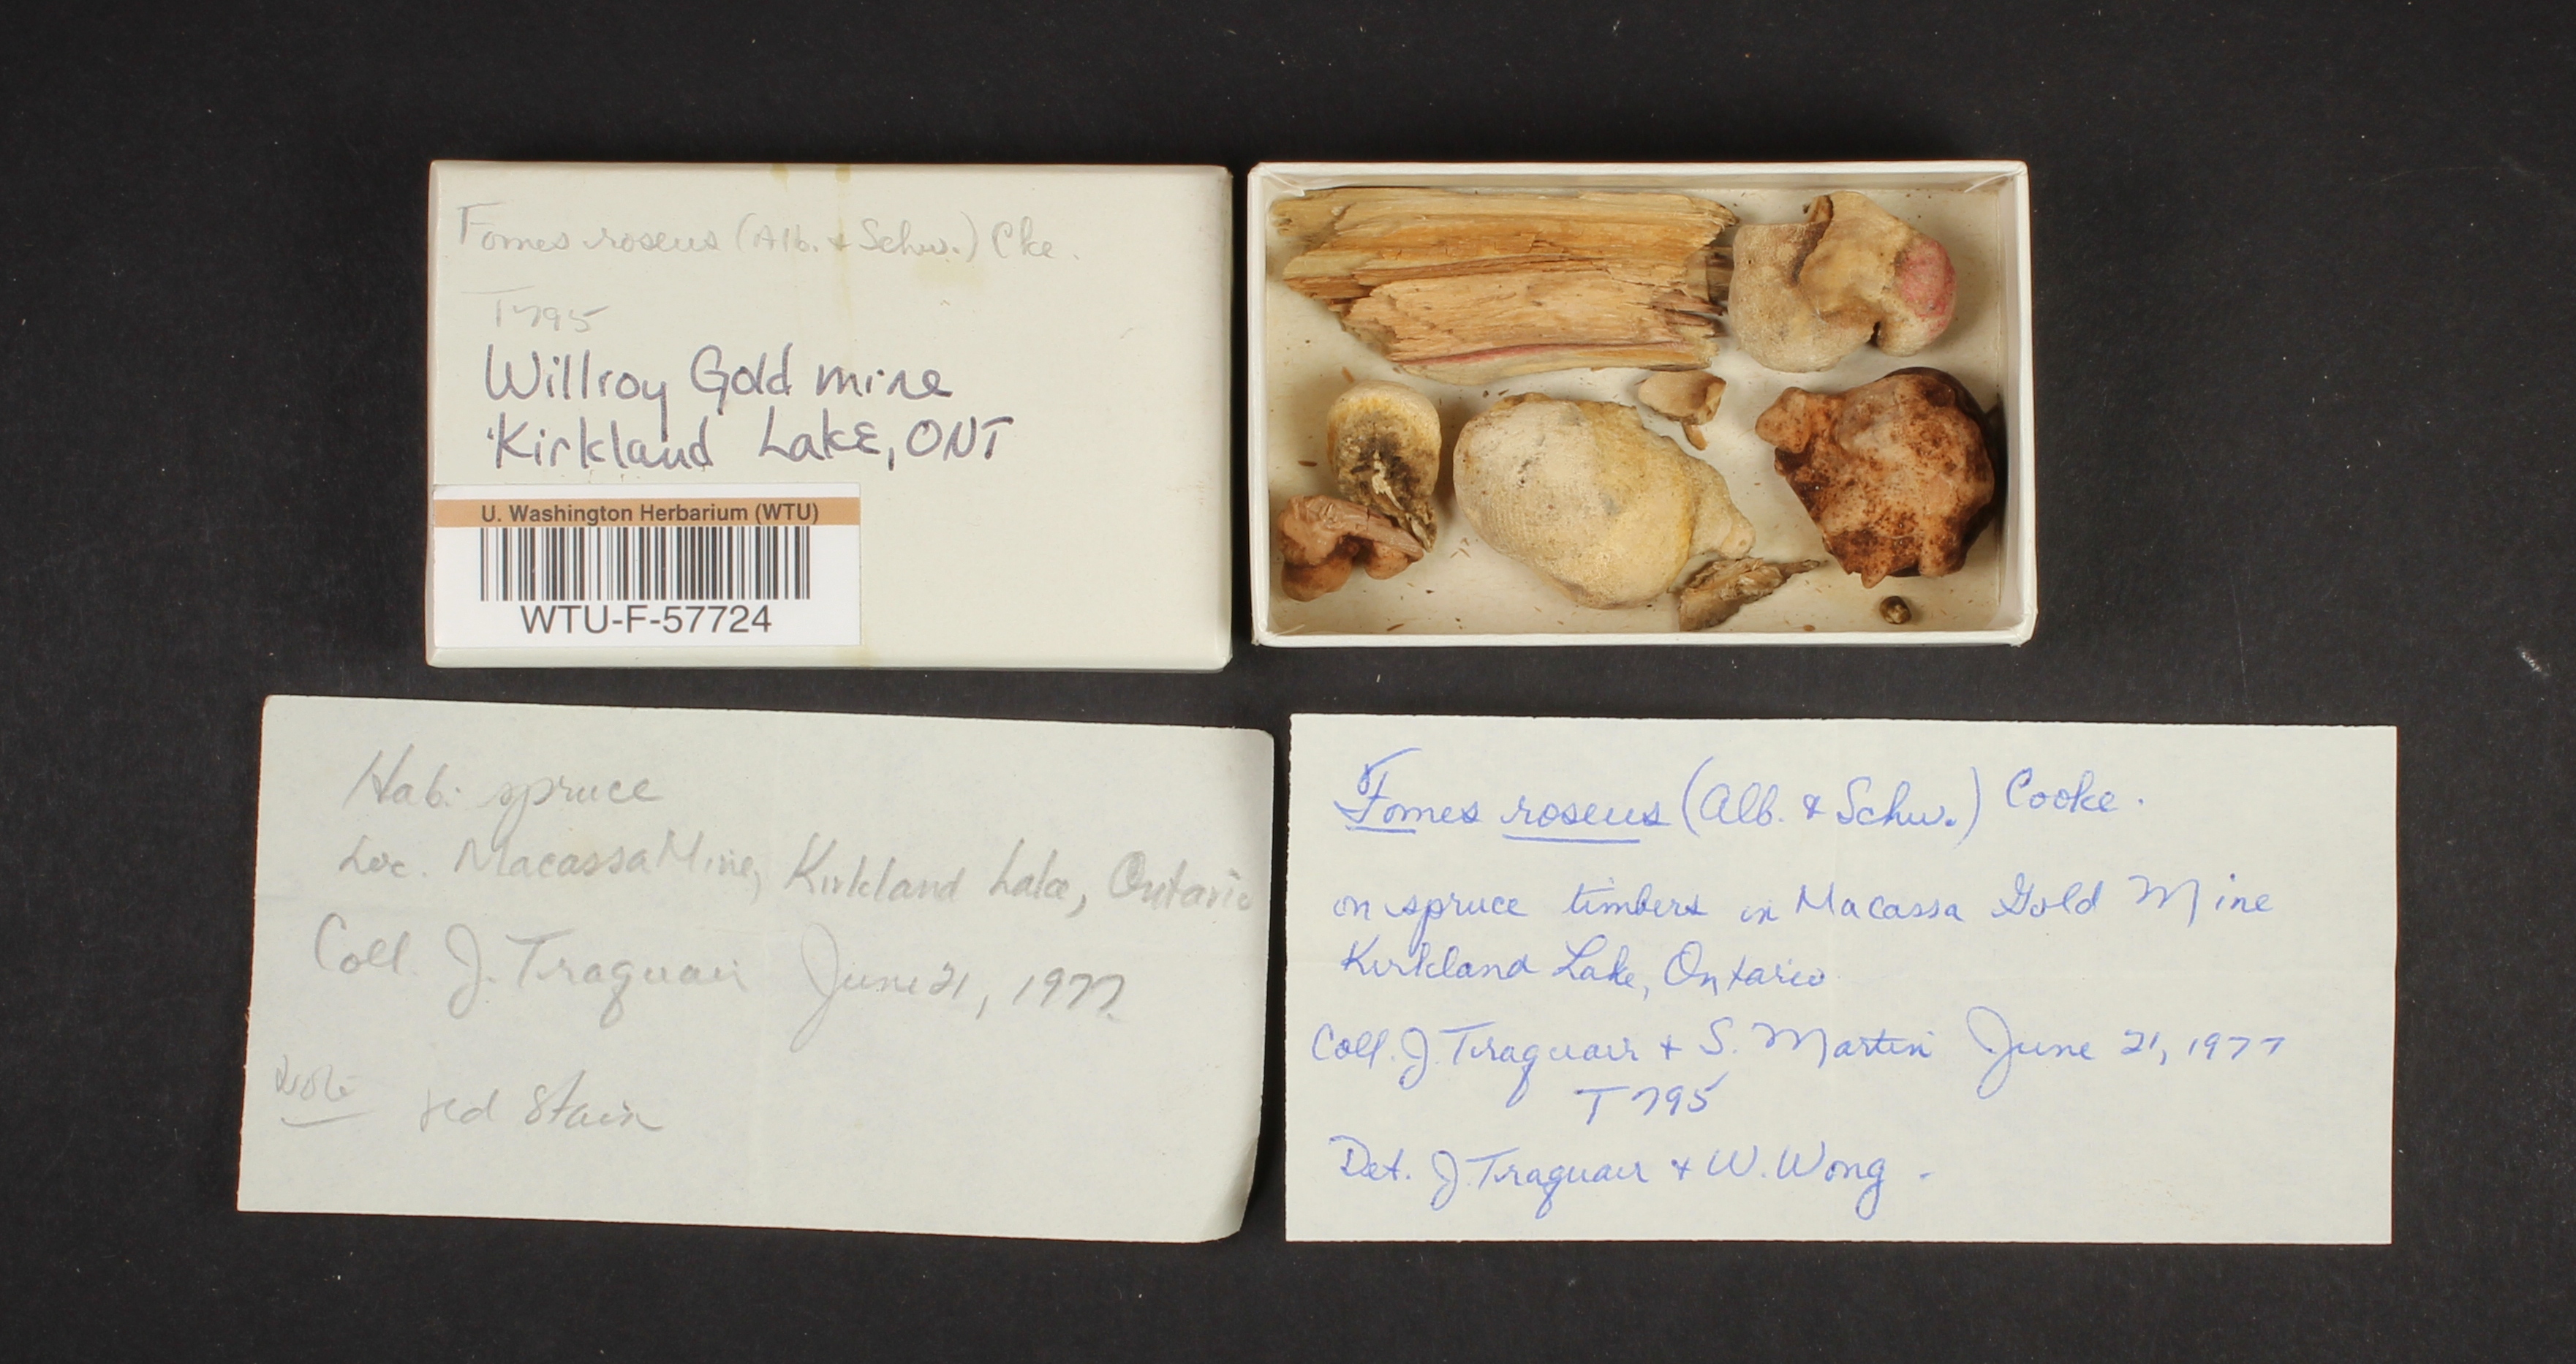 Fomes roseus (Alb. & Schw.) Cke.
T795
Willroy Gold mine
Kirkland Lake, ONT
U. Washington Herbarium (WTU)
WTU-F-57724
Hab: spruce
Loc. Macassa Mine, Kirkland Lake, Ontario
Coll. J. Traquair June 21, 1977
Note red stain
Fomes roseus (Alb. & Schw.) Cooke.
on spruce timbers in Macassa Gold Mine
Kirkland Lake, Ontario
Coll. J. Traquair + S. Martin June 21, 1977
T 795
Det. J. Traquair + W. Wong -